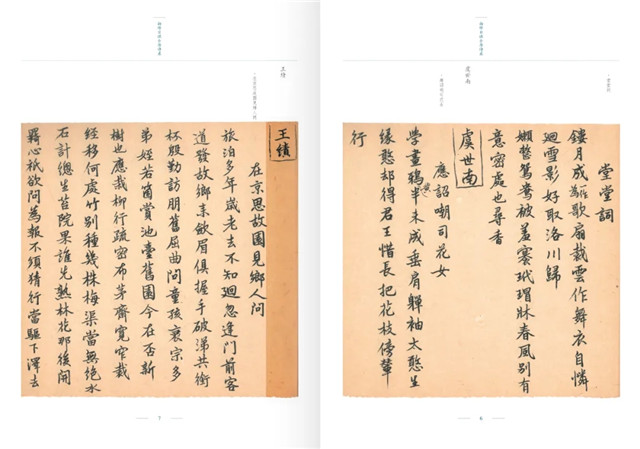 堂堂詞
鏤月成歌扇裁雲作舞衣自憐
迴雪影好取洛川歸
嬾整鴛鴦被羞褰玳瑁牀春風別有
意密處也尋香
虞世南
虞世南
應詔嘲司花女
學畫鴉半未成垂肩嚲袖太憨生
緣憨却得君王惜長把花枝傍輦
行
6
王績
王績
在京思故園見鄉人問
旅泊多年歲老去不知迴忽逢門前客
道發故鄉來斂眉俱握手破涕共銜
杯殷勤訪朋舊屈曲問童孩衰宗多
弟姪若箇賞池臺舊園今在否新
樹也應栽柳行疏密布茅齋寬窄裁
經移何處竹別種幾株梅渠當無絕水
石計總生苔院果誰先熟林花那後開
羈心秖欲問為報不須猜行當驅下澤去
7